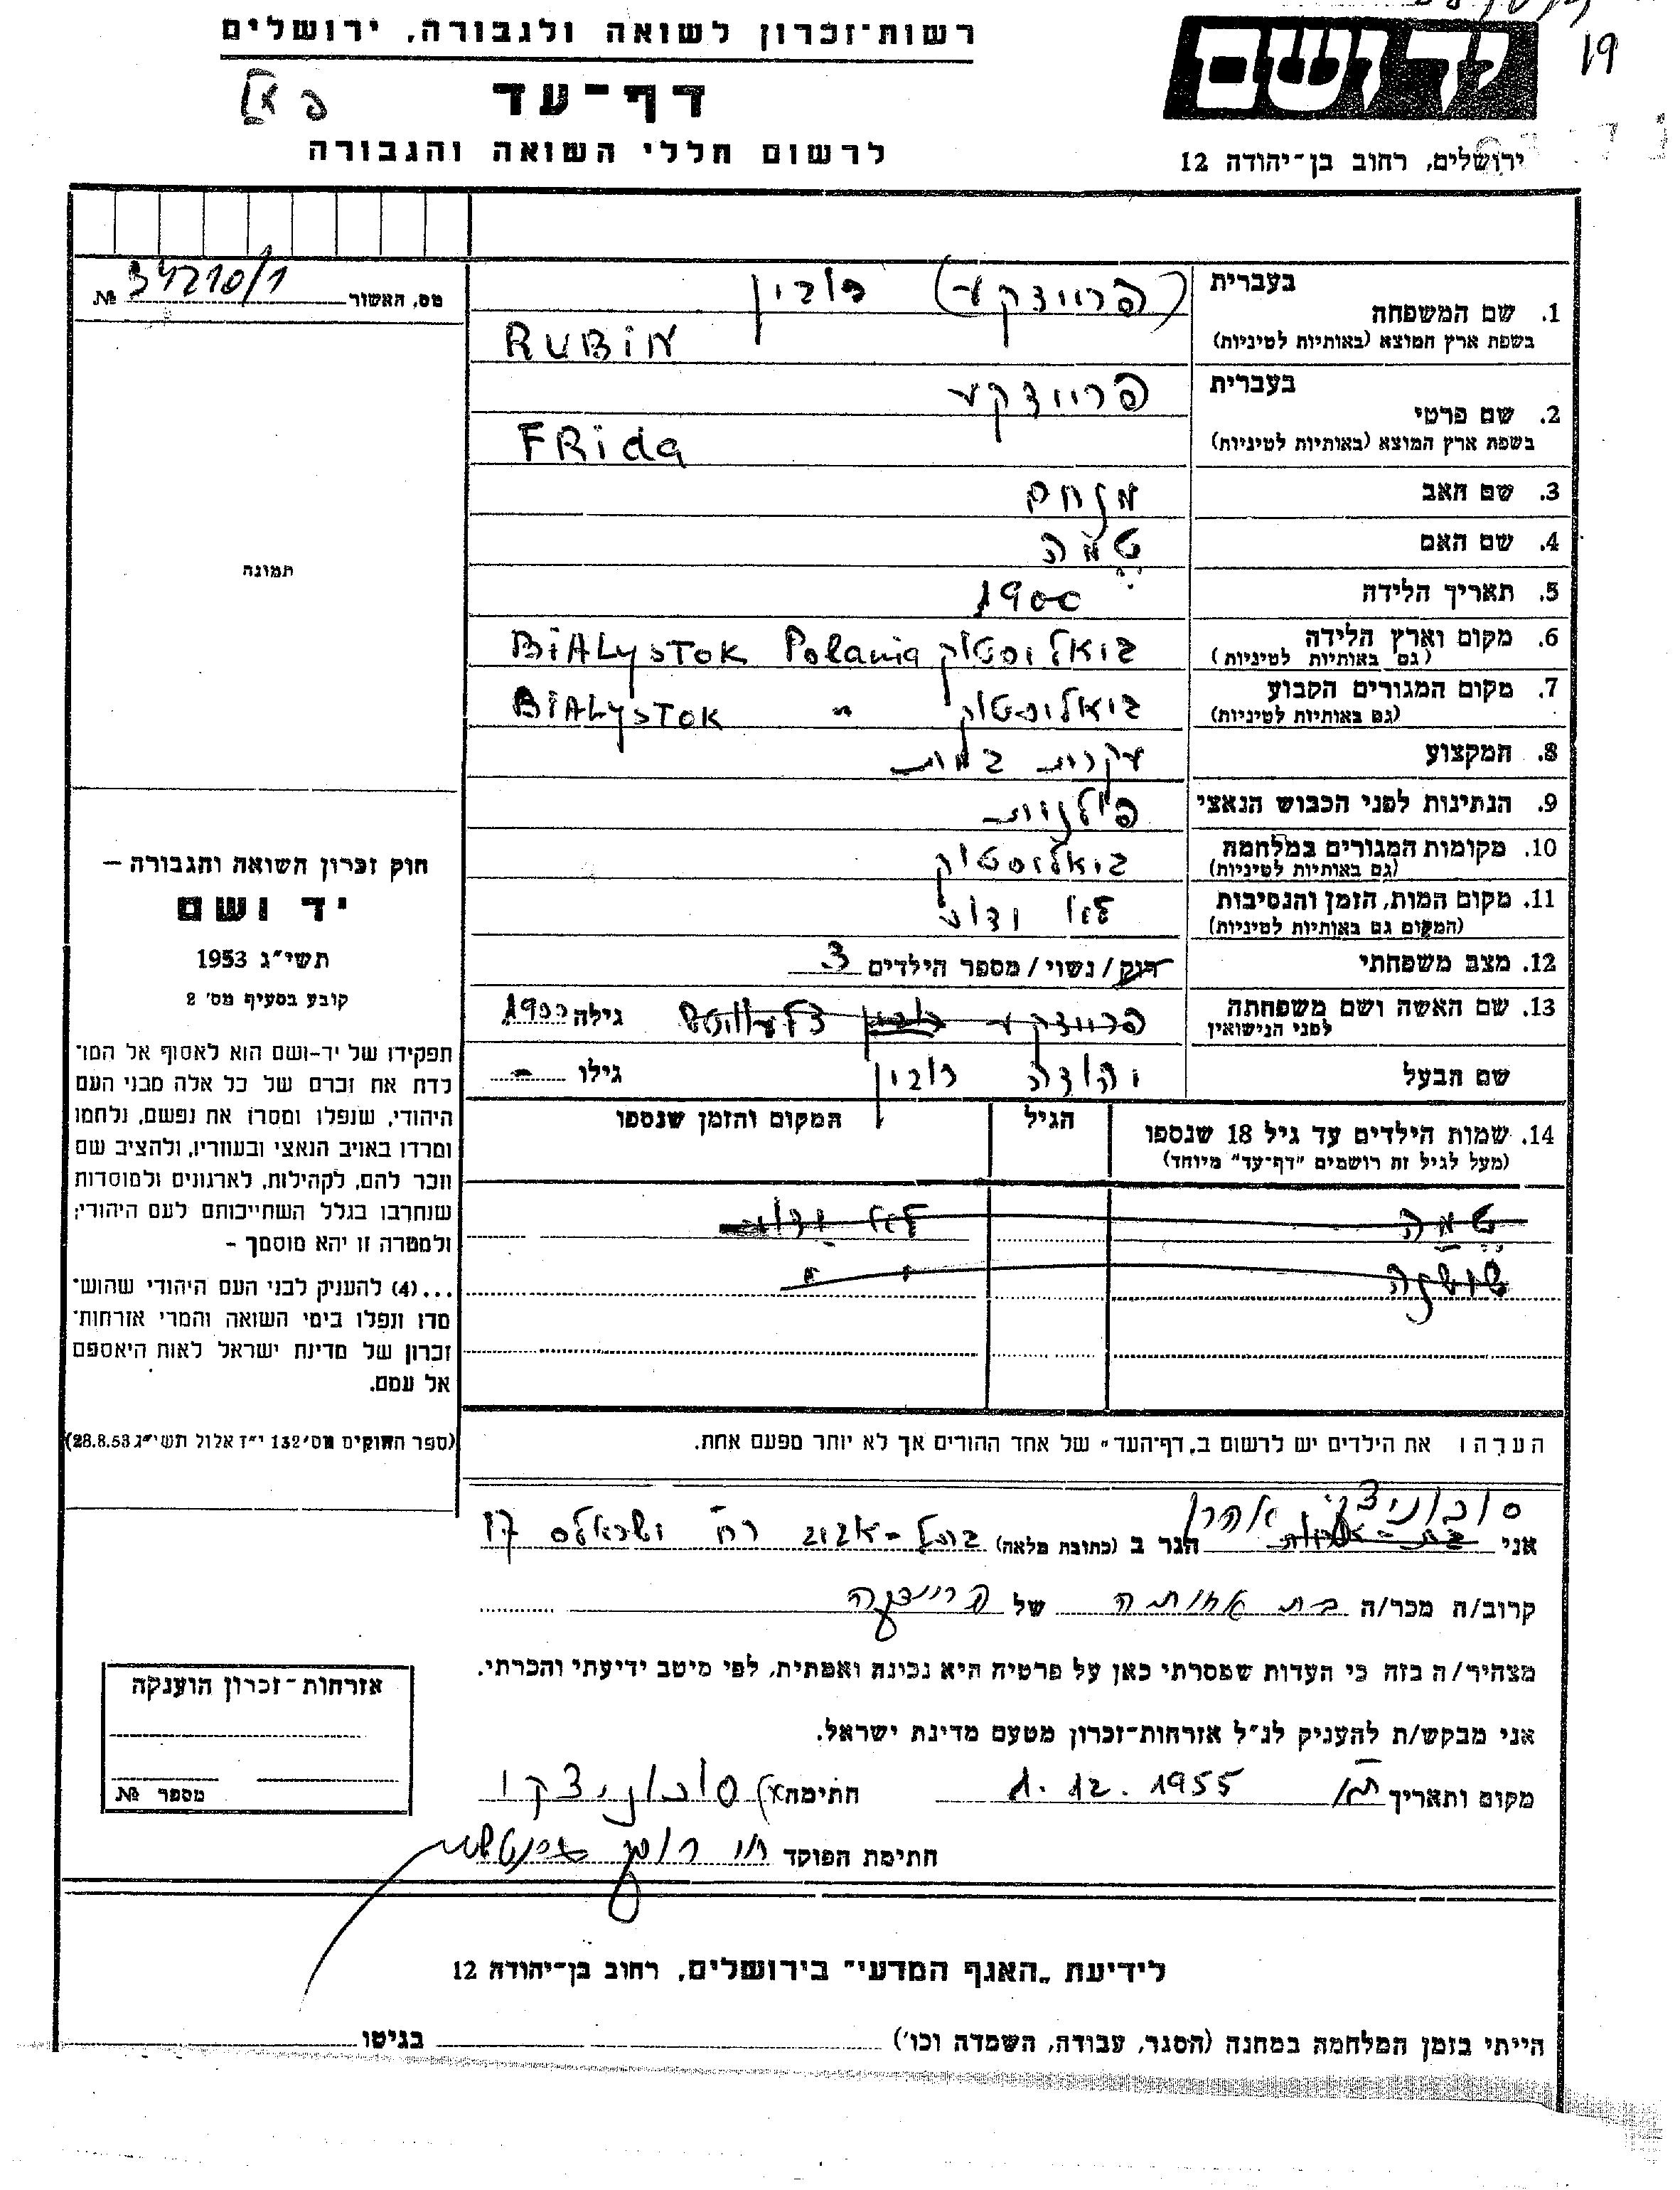 רשות־זכרון לשואה ולגבורה, ירושלים
יד ושם
19
דף־עד
לרשום חללי השואה והגבורה
ירושלים, רחוב בן־יהודה 12
מס, האשור № 34210/1
בעברית
1. שם המשפחה
(פריידקע) רובין
בשפת ארץ המוצא (באותיות לטיניות)
RUBiN
בעברית
2. שם פרטי
פריידקע
בשפת ארץ המוצא (באותיות לטיניות)
FRida
3. שם האב מנחם
4. שם האם שמה
5. תאריך הלידה 1900
6. מקום וארץ הלידה ביאליסטוק BiALySTOK Polania
(גם באותיות לטיניות)
7. מקום המגורים הקבוע ביאליסטוק " BiALySTOK
(גם באותיות לטיניות)
8. המקצוע עקרת בית
9. הנתינות לפני הכבוש הנאצי פולנית
10. מקומות המגורים במלחמה ביאליסטוק
(גם באותיות לטיניות)
11. מקום המות, הזמן והנסיבות לא ידוע
(המקום גם באותיות לטיניות)
12. מצב משפחתי רוק/נשוי/מספר הילדים 3
13. שם האשה ושם משפחתה
לפני הנישואין
פריידקע רובין גילה 1900
שם הבעל יהודה רובין גילו -
14. שמות הילדים עד גיל 18 שנספו הגיל המקום והזמן שנספו
(מעל לגיל זה רושמים "דף־עד" מיוחד)
שמה לא ידוע
שושנה " "
הערה: את הילדים יש לרשום ב„דף־העד" של אחד ההורים אך לא יותר מפעם אחת.
תמונה
חוק זכרון השואה והגבורה —
יד ושם
תשי״ג 1953
קובע בסעיף מס' 2
תפקידו של יד-ושם הוא לאסוף אל המו־
לדת את זכרם של כל אלה מבני העם
היהודי, שנפלו ומסרו את נפשם, נלחמו
ומרדו באויב הנאצי ובעוזריו, ולהציב שם
וזכר להם, לקהילות, לארגונים ולמוסדות
שנחרבו בגלל השתייכותם לעם היהודי;
ולמטרה זו יהא מוסמך -
...(4) להעניק לבני העם היהודי שהוש־
מדו ונפלו בימי השואה והמרי אזרחות־
זכרון של מדינת ישראל לאות היאספם
אל עמם.
(ספר החוקים מס' 132 י״ז אלול תשי״ג 28.8.53)
סוכוניצקי אהרן
אני הגר ב (כתובת מלאה) בתל-אביב רח' 17
קרוב/ה מכר/ה בת אחותה של פריידקה
מצהיר/ה בזה כי העדות שמסרתי כאן על פרטיה היא נכונה ואמתית, לפי מיטב ידיעתי והכרתי.
אני מבקש/ת להעניק לנ״ל אזרחות־זכרון מטעם מדינת ישראל.
מקום ותאריך ת"א 1.12.1955 חתימה סוכוניצקי
חתימת הפוקד
אזרחות־זכרון הוענקה
מספר №
לידיעת „האגף המדעי" בירושלים, רחוב בן־יהודה 12
הייתי בזמן המלחמה במחנה (הסגר, עבודה, השמדה וכו') בגיטו